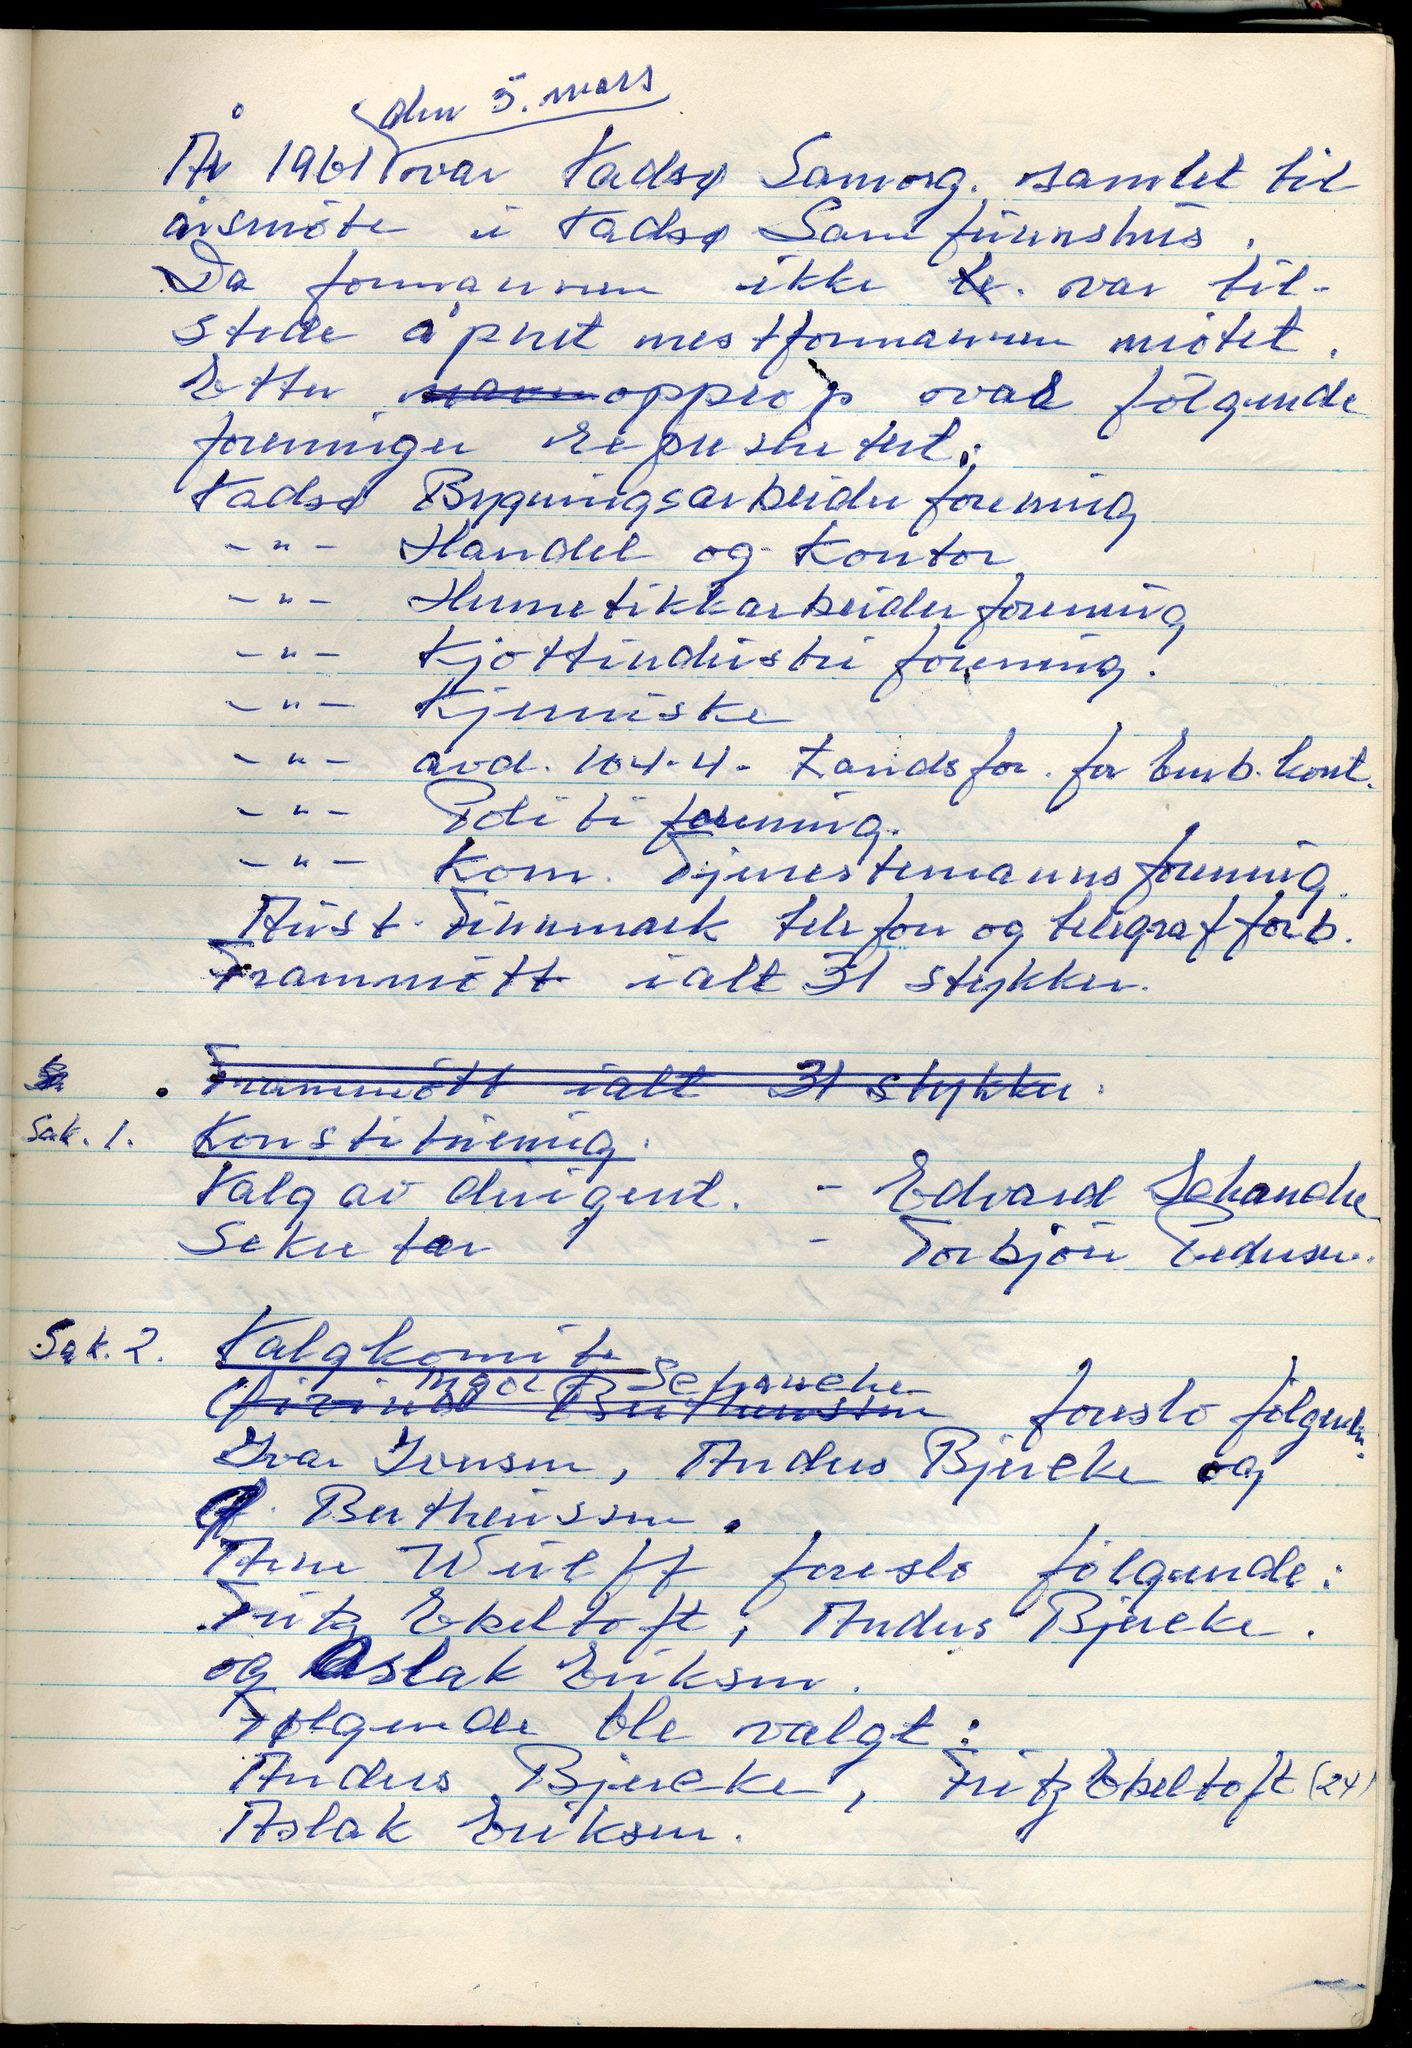 den 5. mars
År 1961 var Vadsø Samorg. samlet til
årsmøte i Vadsø Samfunnshus.
Da formannen ikke te. var til-
stede åpnet nestformannen møtet.
Etter navn opprop var følgende
foreninger representert:
Vadsø Bygningsarbeider forening
- " - Handel og Kontor
- " - Hermetikkarbeider forening
- " - Kjøttindustri forening.
- " - Kjemiske
- " - avd. 104.4. Landsfor. for Emb. kont.
- " - Politi forening.
- " - Kom. Tjenestemanns forening.
Aust. Finnmark telefon og telegraf forb.
Frammøtt ialt 31 stykker.
Frammøtt ialt 31 stykker.
Sak. 1. Konstituering.
Valg av dirigent. - Edvard Schanche
Sekretær - Torbjørn Pedersen.
Sak. 2. Valgkomite
Schanche
Bertheussen foreslo følgende:
Ivar Iversen, Anders Bjercke og
Bertheussen.
Arne Wulff foreslo følgende:
Fritz Ebeltoft, Anders Bjercke.
og Aslak Eriksen.
Følgende ble valgt:
Anders Bjercke, Fritz Ebeltoft (24)
Aslak Eriksen.